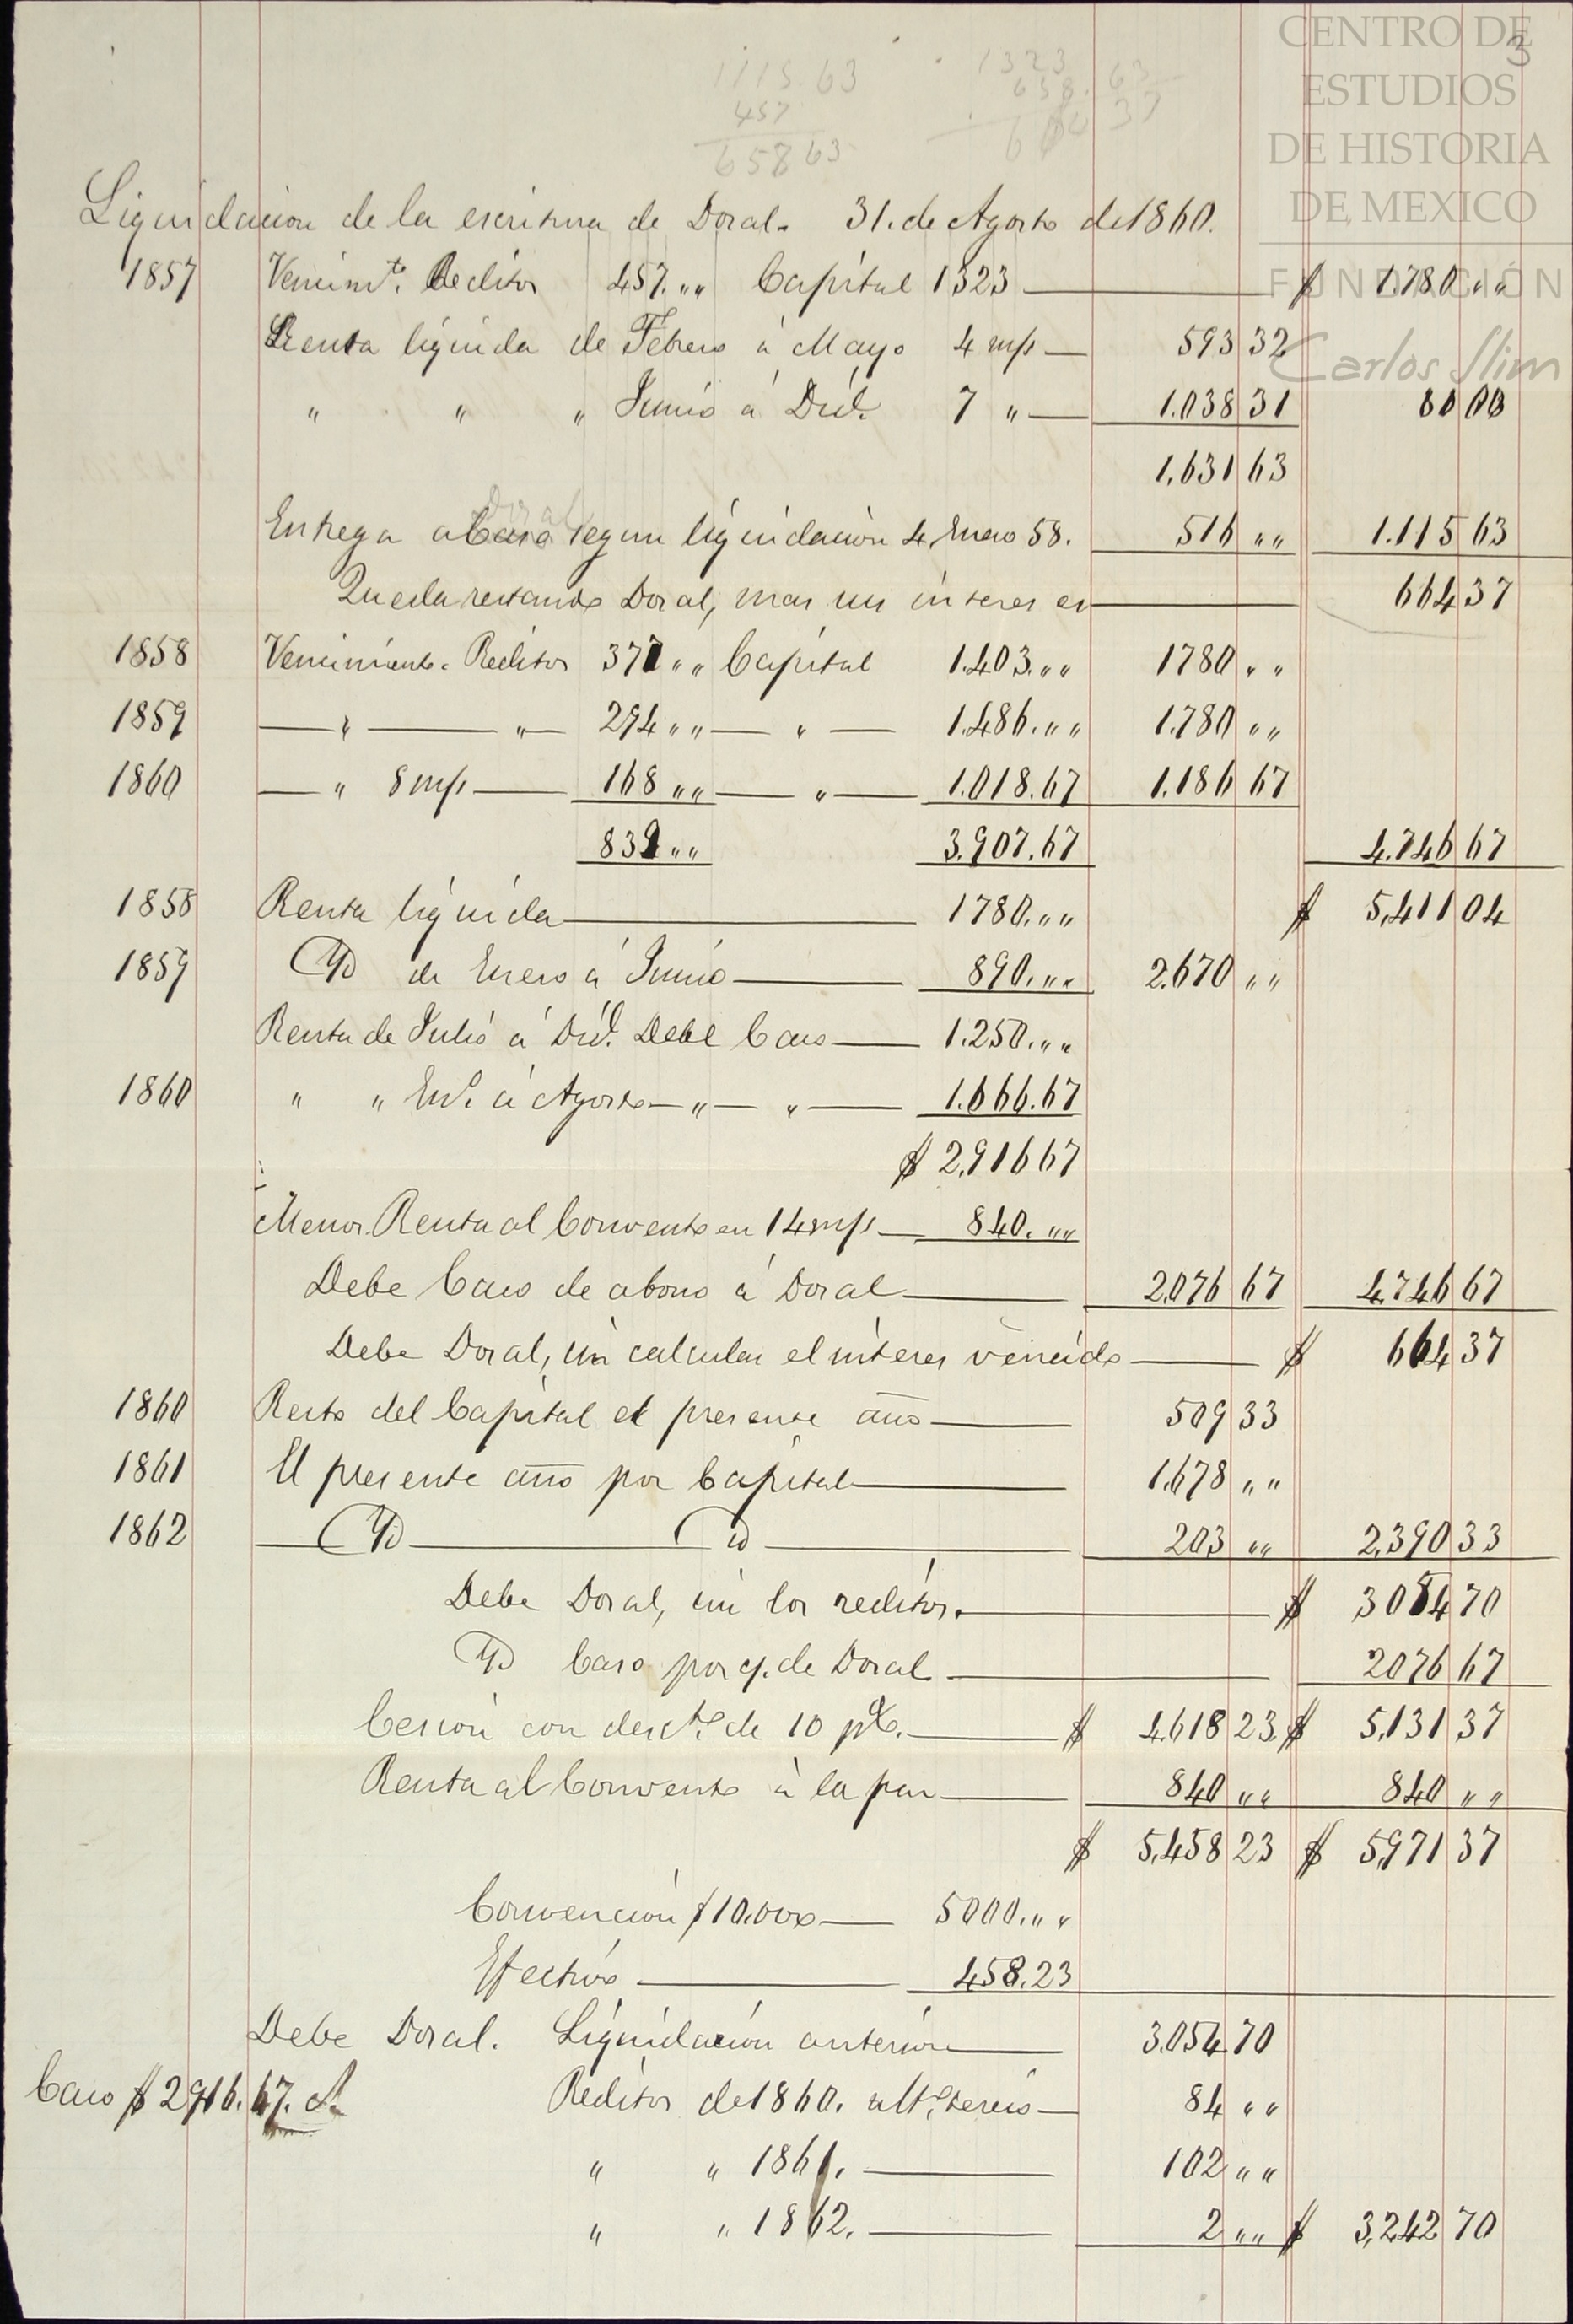 CENTRO DE
ESTUDIOS
DE HISTORIA
DE MEXICO
FUNDACIÓN
Carlos Slim
3
1115.63
457
658 63
1323
658.63
664 37
Liquidacion de la escritura de Doral. 31. de Agosto de 1860.
1857 Vencimto. Reditos 457. „„ Capital 1323 — $ 1.780 „„
Renta liquida de Febrero á Mayo 4 m/s — 593 32
„ „ „ Junio á Dic. 7 „ — 1.038 31
1.631 63
Entrega a Caso segun liquidación 4 Enero 58. 516 „„ 1.115 63
Queda restando Doral, mas un interes es — 664 37
1858 Vencimiento. Reditos 377 „„ Capital 1.403. „„ 1780 „„
1859 — „ — „ — 294 „„ — „ — 1.486. „„ 1.780 „„
1860 — „ 8 m/s — 168 „„ — „ — 1.018.67 1.186 67
839 „„ 3.907.67 4.746 67
1858 Renta liquida — 1780. „„ $ 5,411 04
1859 Yd de Enero á Junio — 890. „„ 2.670 „„
Renta de Julio á Dic. Debe Caso — 1.250. „„
1860 „ „ Eno. á Agosto — „ — „ — 1.666.67
$ 2,916 67
Menor Renta al Convento en 14 m/s — 840. „„
Debe Caso de abono á Doral — 2,076 67 4,746 67
Debe Doral, sin calcular el interes vencido — $ 664 37
1860 Resto del Capital el presente año — 509 33
1861 El presente año por Capital — 1.678 „„
1862 — Yd — id — 203 „„ 2,390 33
Debe Doral, sin los reditos. — $ 3054 70
Yd Caso por c/. de Doral — 2076 67
Cesion con desc.to de 10 p%. — $ 4.618 23 $ 5,131 37
Renta al Convento á la par — 840 „„ 840 „„
$ 5,458 23 $ 5,971 37
Convencion $10.000 — 5000. „„
Efectivo — 458.23
Debe Doral. Liquidación anterior — 3.054 70
Caso $ 2916.67. Reditos de 1860. ult.o tercio — 84 „„
„ „ 1861. — 102 „„
„ „ 1862. — 2 „„ $ 3,242 70